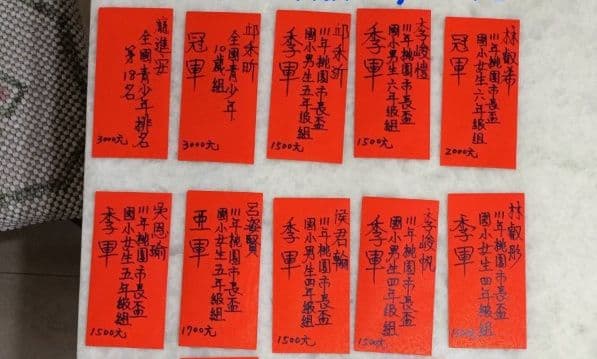 進安
全國青少年排名
第18名
3000元
邱禾昕
全國青少年
10歲組
冠軍
3000元
邱禾昕
111年桃園市長盃
國小男生五年級組
季軍
1500元
李峻禮
111年桃園市長盃
國小男生六年級組
季軍
1500元
林叡希
111年桃園市長盃
國小女生六年級組
冠軍
2000元
吳恩瑜
111年桃園市長盃
國小女生五年級組
季軍
1500元
呂姿賢
111年桃園市長盃
國小女生五年級組
亞軍
1700元
侯君翰
111年桃園市長盃
國小男生四年級組
季軍
1500元
李峻帆
111年桃園市長盃
國小男生四年級組
季軍
1500元
林叡彤
111年桃園市長盃
國小女生四年級組
季軍
1500元